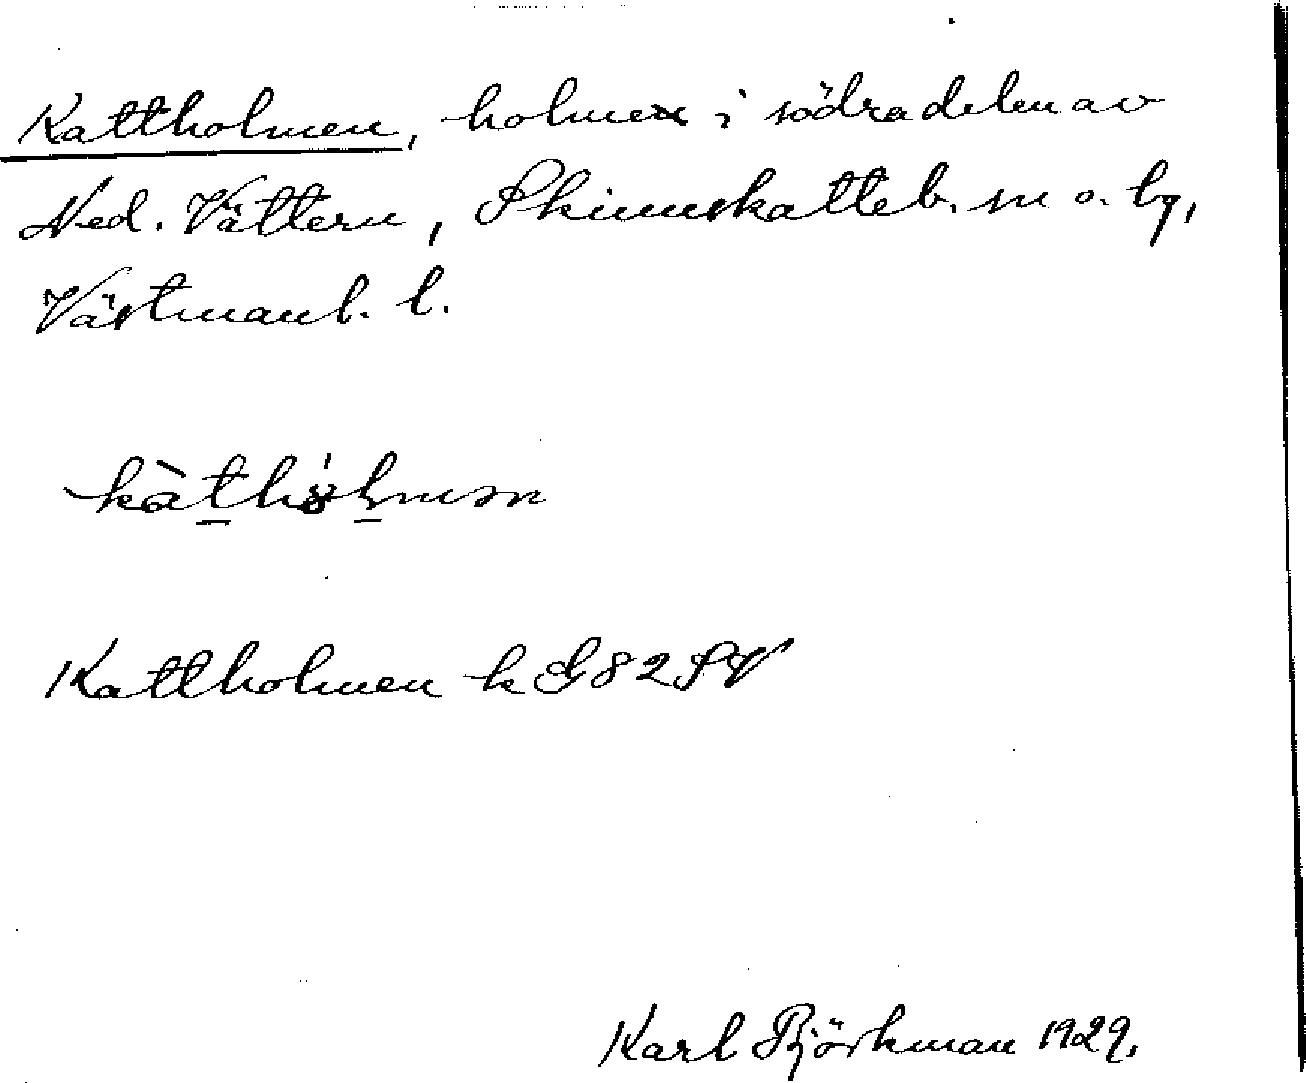 Kattholmen, holme i södra delen av
Ned. Vättern, Skinnskatteb. sn o. bg,
Västmanl. l.
Kattholmen k G 82 SV
Karl Björkman 1929.